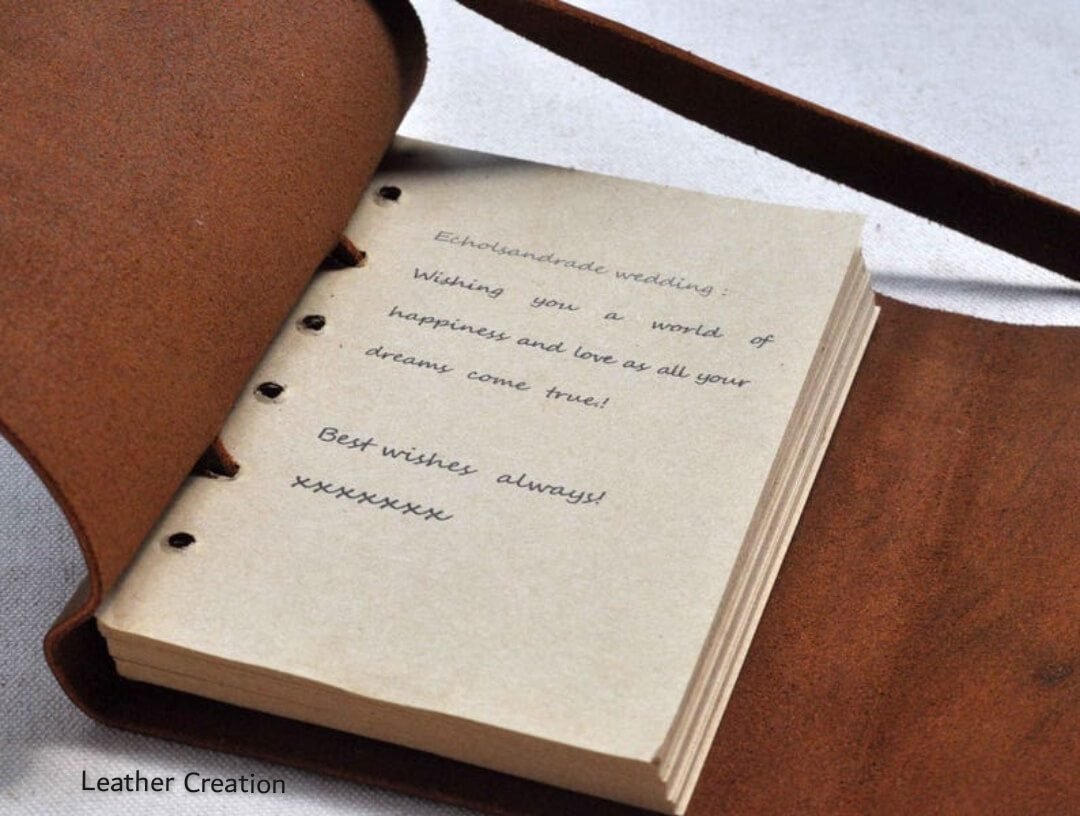 Echolsandrade wedding :
Wishing you a world of
happiness and love as all your
dreams come true!
Best wishes always!
xxxxxxx
Leather Creation